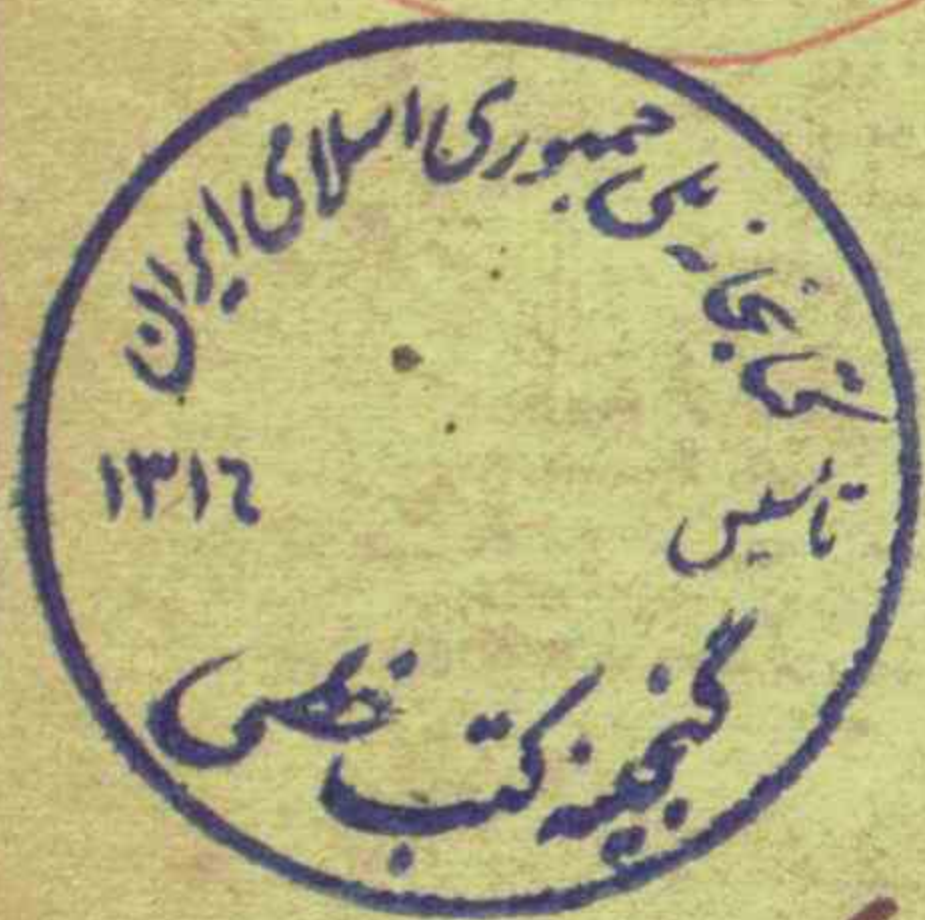 کتابخانه ملی جمهوری اسلامی ایران
تاسیس
۱۳۱۶
گنجینه کتب خطی